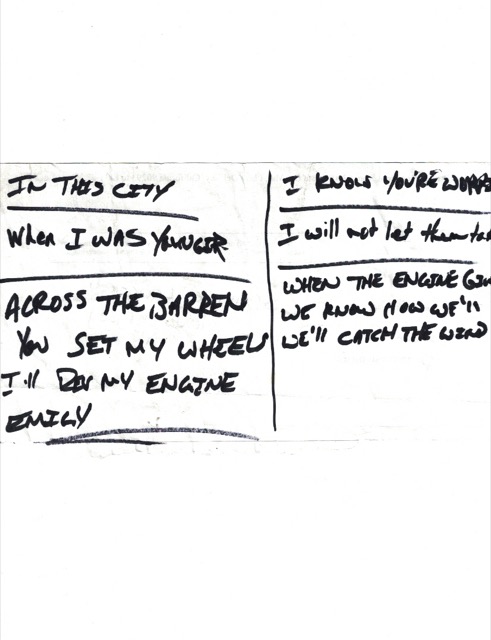 IN THIS CITY
When I WAS YOUNGER
ACROSS THE BARREN
YOU SET MY WHEELS
I'll REV MY ENGINE
EMILY
I KNOW YOU'RE WORR
I will not let them ta
WHEN THE ENGINE GI
WE KNOW HOW WE'll
WE'll CATCH THE WIND